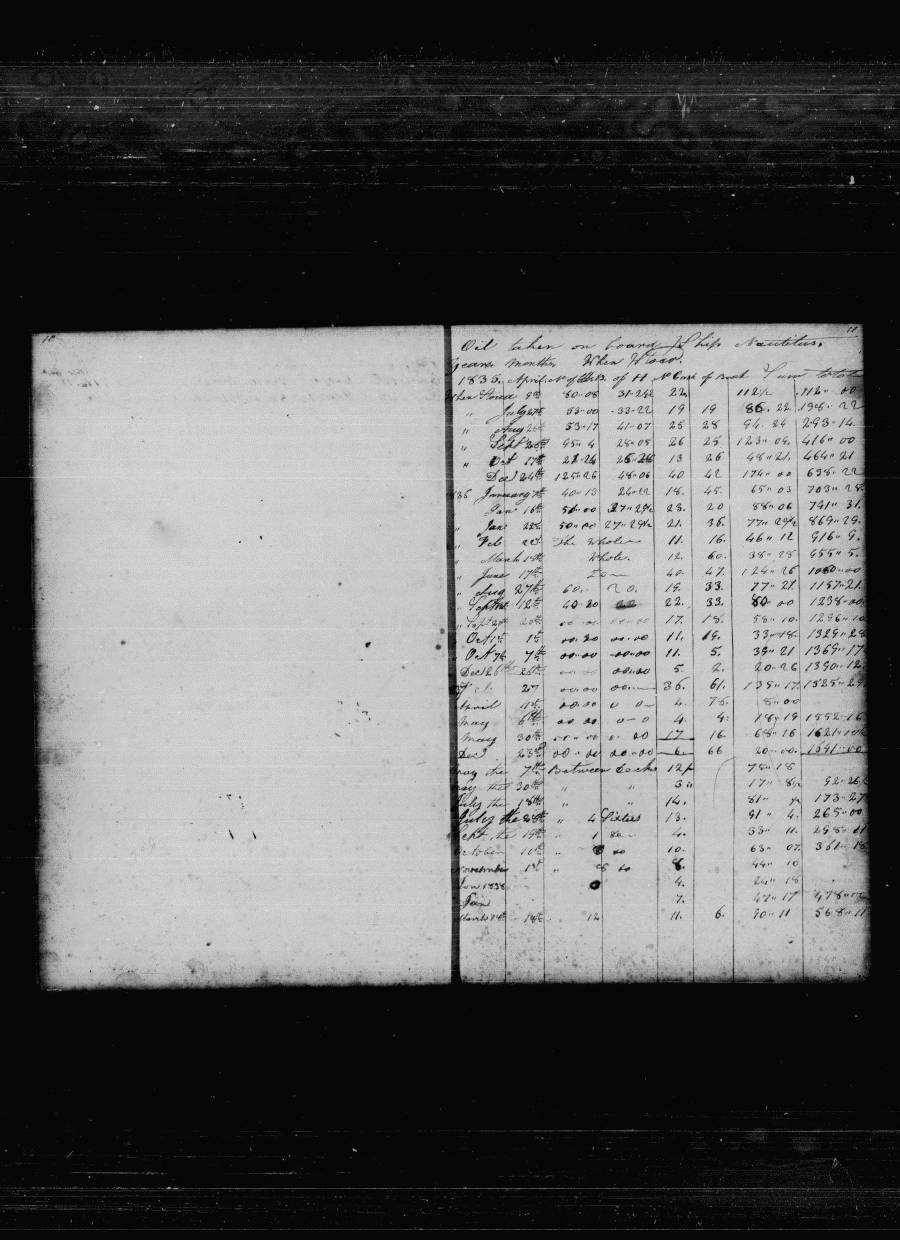 10
11
Oil taken on board Ship Nautilus.
Years Months When Stow.
1835. April No of Bbls of H No Cask of Each Sum total
When Stowed 9th 80-08 31-24½ 22 112½ 112" 00
" July 27th 53-00 -33-22 19 19 86. 22 198-22
" Aug 26th 53-17 41-07 25 28 94. 24 293-14.
" Sept 26th 95" 4 28"05 26 25 123"09. 416"00
" Oct 17th 22-24 26"26 13 26 48"21. 464"21
Decr 24th 125"26 48"06 40 42 174"00 638-22
1836 January 7th 40-13 24"22 18. 45. 65"03 703"28
Jany 16th 51"00 37"29½ 23. 20 88"06 791"31.
" Jany 23d 50"00 27"29½ 21. 36. 77"29½ 869"29.
" Feb 22d The Whole 11. 16. 46"12 916"9.
" March 14th Whole. 12. 60. 38"28 955"5.
" June 17th Do 40. 47. 124"26 1080"00
" Aug 27th 60. 20. 19. 33. 77"21 1157"21.
" Sept 12th 40-20 22 22. 33. 80"00 1238"00
" Sept 20th 20th 00"00 00-00 17. 18. 58"10. 1296"10
" Oct 1st 1st 00.20 00.00 11. 19. 33"18. 1329"28
" Oct 7th 7th 00"00 00-00 11. 5. 39"21 1369"17
Decr 26th 26th 00 00 00"00 5. 2. 20-26 1390"12.
Feb 27 00.00 00. 36. 61. 135"17. 1525"29
April 1st 00.00 0 0 4. 75. 8"00
May 6th 00 00 0-0 4. 4. 18"19 1552"16
May 30th 00"00 0. 00 17 16 68"16 1621"00
Decr 23d 00"00 00"00 6. 66 20"00. 1641"00
May the 7th Between Decks 12 78"18
May the 30th " " 3" 17"8 92"26
July the 18th " " 14. 81" 173"27
July the 28th " 4 Sixties 13. 91" 4. 265"00
Sept the 19th " 1 do 4. 33" 11. 298"
October 10th " 8 do 10. 63" 07. 361"18
November 1st " 8 do 8. 44" 10
Jan 1838 0 4. 24"18
Jan 7. 47"17 478"
March 14th 14th 12 11. 6. 90"11 568"11